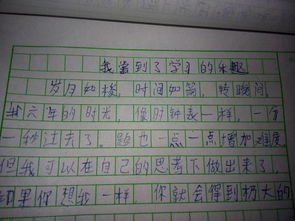 我尝到了学习的乐趣
岁月如梭,时间如箭,转瞬间,
我六年的时光,像时钟表一样,一分
一秒过去了。题也一点一点增加难度
但我可以在自己的思考下做出来了。
如果你想我一样,你就会得到极大的